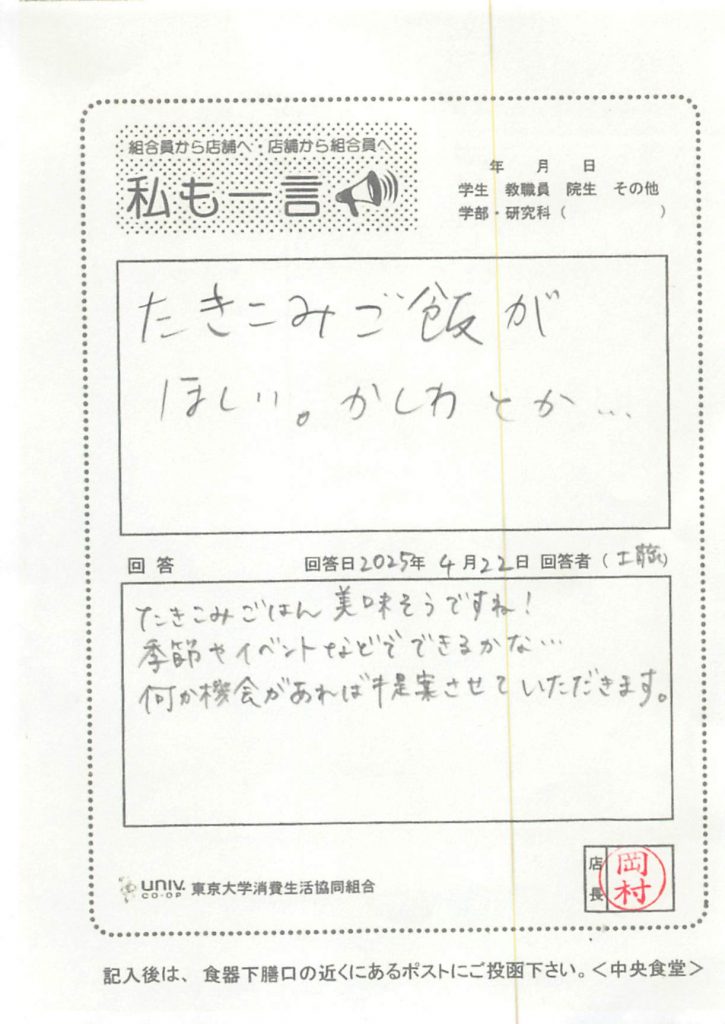 組合員から店舗へ・店舗から組合員へ
私も一言
年 月 日
学生 教職員 院生 その他
学部・研究科（ ）
たきこみご飯が
ほしい。かしわとか…
回答 回答日2025年 4月22日 回答者（ ）
たきこみごはん 美味そうですね！
季節やイベントなどでできるかな…
何か機会があれば提案させていただきます。
UNIV. CO-OP 東京大学消費生活協同組合
店長 岡村
記入後は、食器下膳口の近くにあるポストにご投函下さい。＜中央食堂＞